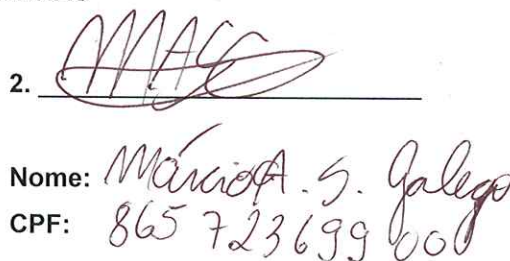 2. MAG
Nome: Márcio A. S. Galego
CPF: 865 723699 00